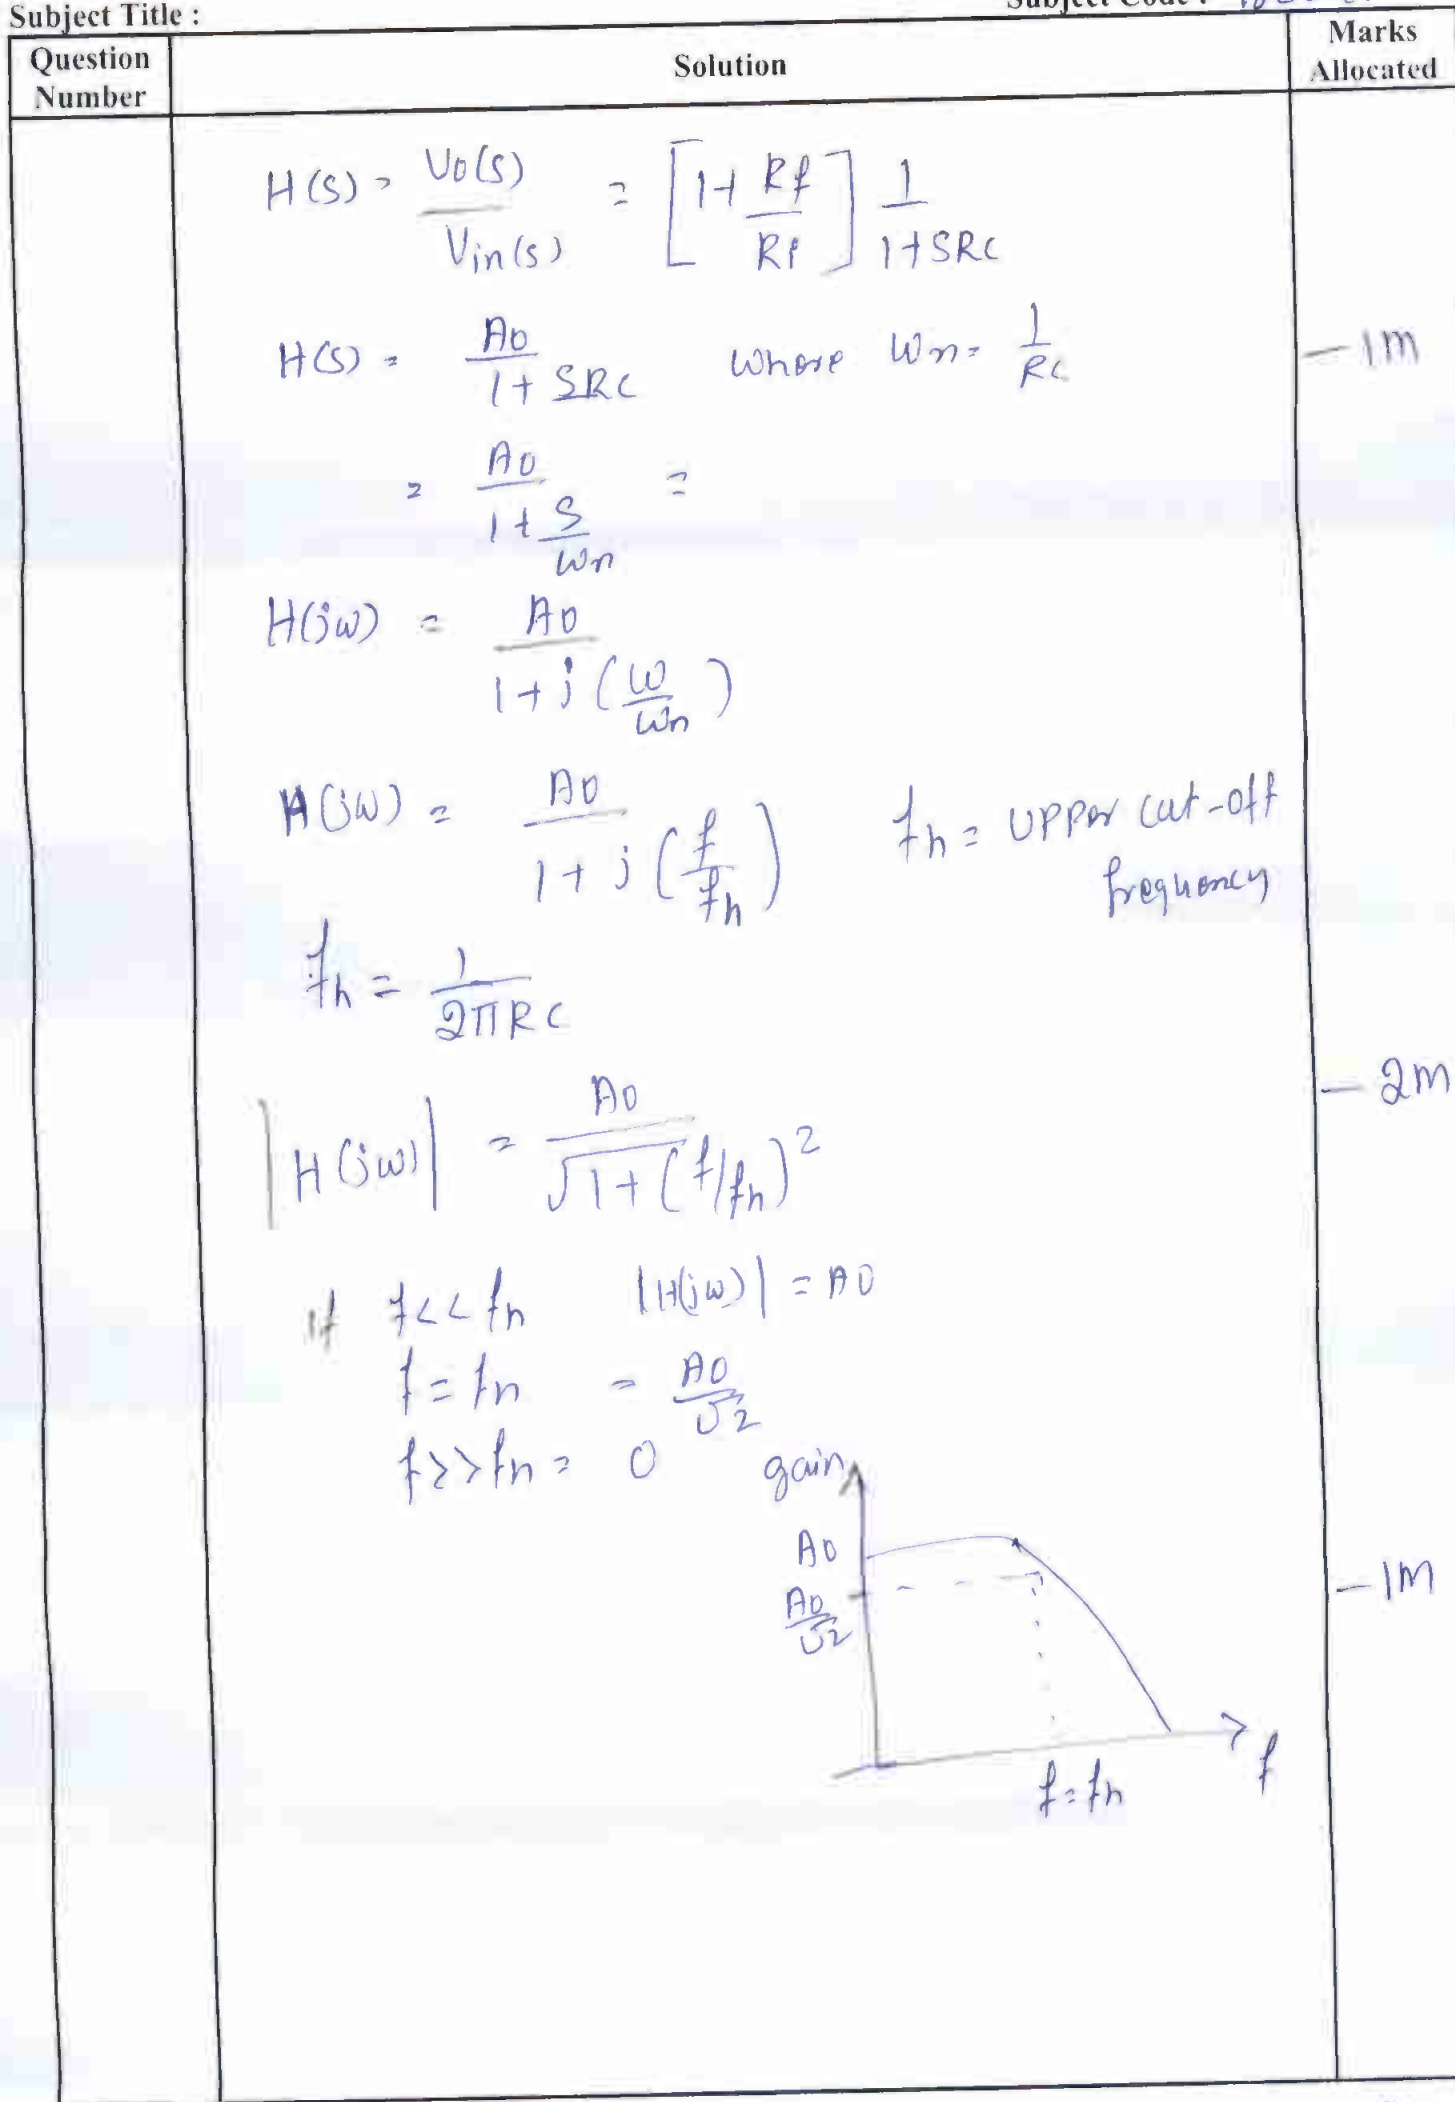 Subject Title :
Question Number
Solution
Marks Allocated
H(S) = Vo(S) / Vin(s) = [1 + Rf / Rf] 1 / 1+SRC
H(S) = A0 / 1+ SRC where Wn = 1 / RC
- 1M
= A0 / 1+ S/Wn =
H(jω) = A0 / 1+j(ω/ωn)
H(jω) = A0 / 1+j(f/fh) fh = UPPer cut-off
frequency
fh = 1 / 2πRC
- 2M
|H(jω)| = A0 / √1+(f/fh)²
If f<<fh |H(jω)| = A0
f=fh = A0/√2
f>>fh = 0
gain
A0
A0/√2
- 1M
f=fh
f